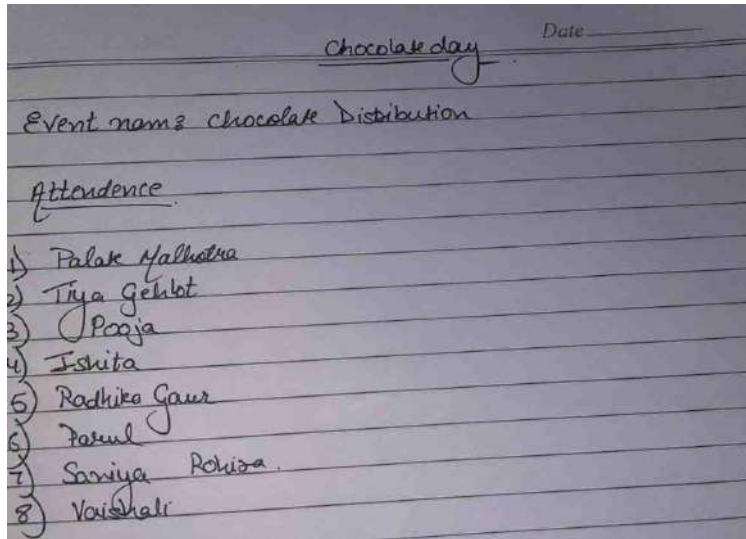 Date
Chocolate day
Event name Chocolate Distibution
Attendence
1) Palak Malhotra
2) Tiya Gehlot
3) Pooja
4) Ishita
5) Radhika Gaur
6) Parul
7) Saniya
8) Vaishali